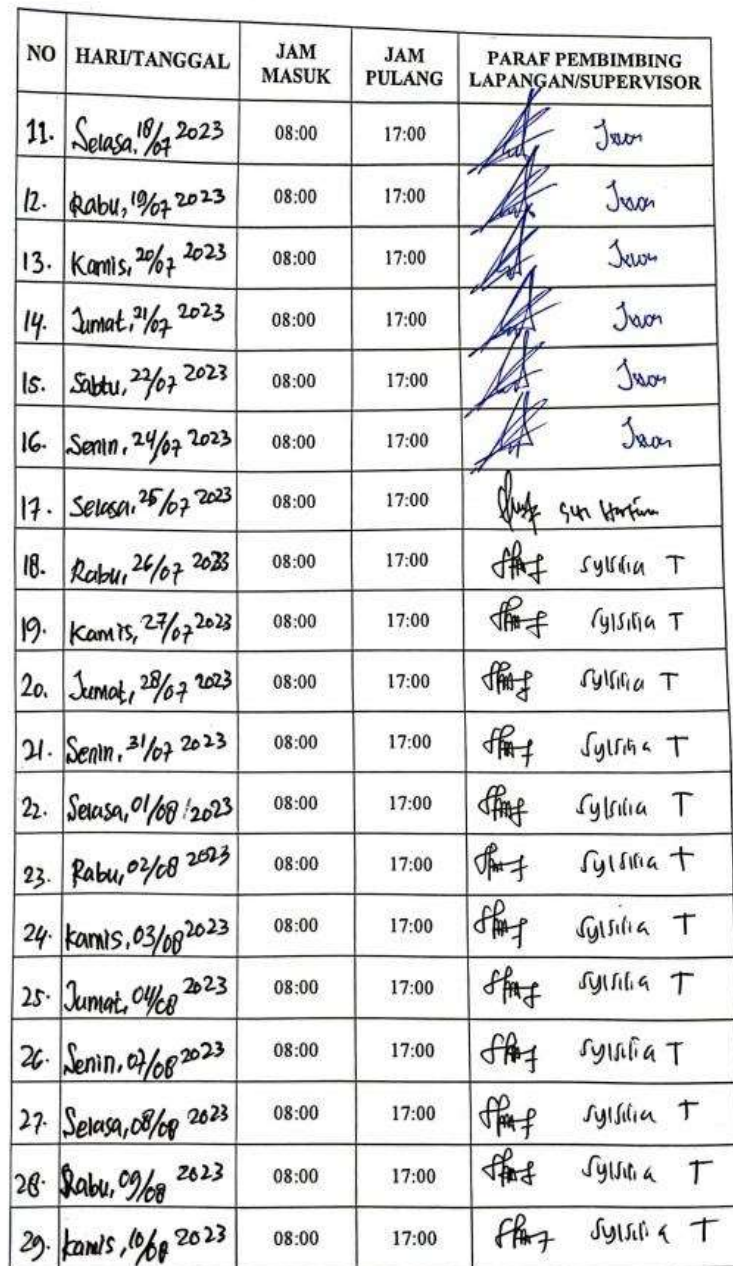 NO HARI/TANGGAL JAM MASUK JAM PULANG PARAF PEMBIMBING LAPANGAN/SUPERVISOR
11. Selasa, 18/07 2023 08:00 17:00
12. Rabu, 19/07 2023 08:00 17:00
13. Kamis, 20/07 2023 08:00 17:00
14. Jumat, 21/07 2023 08:00 17:00
15. Sabtu, 22/07 2023 08:00 17:00
16. Senin, 24/07 2023 08:00 17:00
17. Selasa, 25/07 2023 08:00 17:00
18. Rabu, 26/07 2023 08:00 17:00 Sylsilia T
19. Kamis, 27/07 2023 08:00 17:00 Sylsilia T
20. Jumat, 28/07 2023 08:00 17:00 Sylsilia T
21. Senin, 31/07 2023 08:00 17:00 Sylsilia T
22. Selasa, 01/08/2023 08:00 17:00 Sylsilia T
23. Rabu, 02/08 2023 08:00 17:00 Sylsilia T
24. Kamis, 03/08 2023 08:00 17:00 Sylsilia T
25. Jumat, 04/08 2023 08:00 17:00 Sylsilia T
26. Senin, 07/08 2023 08:00 17:00 Sylsilia T
27. Selasa, 08/08 2023 08:00 17:00 Sylsilia T
28. Rabu, 09/08 2023 08:00 17:00 Sylsilia T
29. Kamis, 10/08 2023 08:00 17:00 Sylsilia T